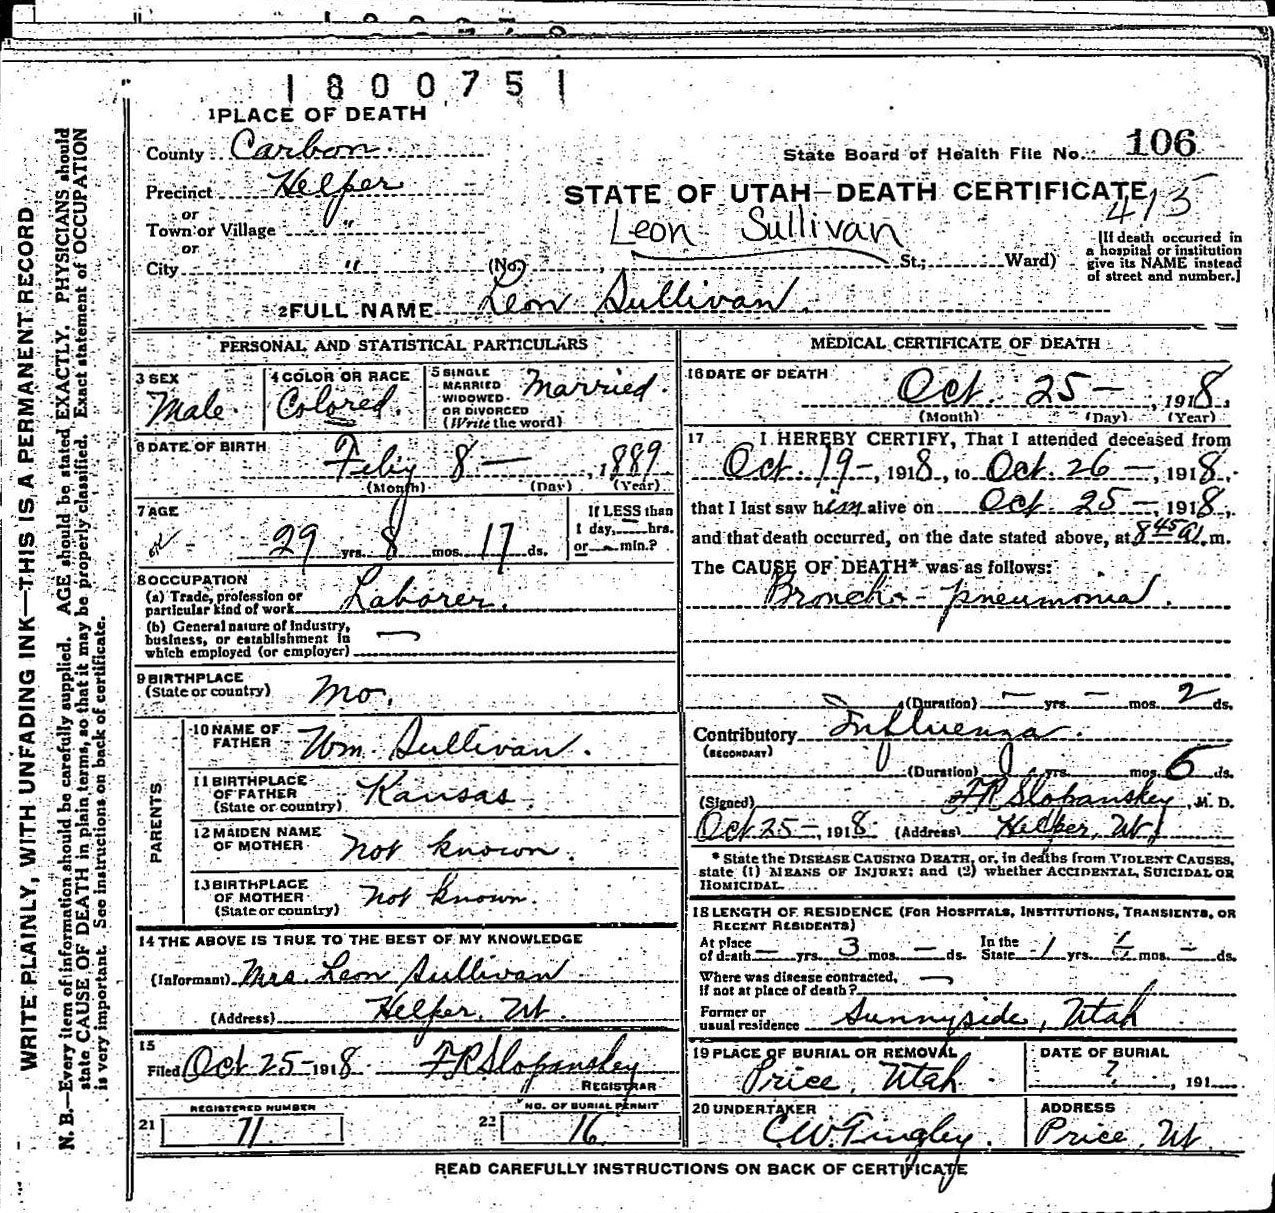 1800751
1 PLACE OF DEATH
County Carbon.
State Board of Health File No. 106
Precinct Helper
STATE OF UTAH—DEATH CERTIFICATE
415
or
Town or Village "
Leon Sullivan
or
City "
(No. , St.; Ward)
[If death occurred in
a hospital or institution
give its NAME instead
of street and number.]
2 FULL NAME Leon Sullivan.
PERSONAL AND STATISTICAL PARTICULARS
3 SEX
Male.
4 COLOR OR RACE
Colored.
5 SINGLE
MARRIED
WIDOWED
OR DIVORCED
(Write the word)
Married.
6 DATE OF BIRTH
Feby 8 — , 1889
(Month) (Day) (Year)
7 AGE
29 yrs. 8 mos. 17 ds.
If LESS than
1 day, — hrs.
or — min.?
8 OCCUPATION
(a) Trade, profession or
particular kind of work Laborer.
(b) General nature of industry,
business, or establishment in
which employed (or employer) —
9 BIRTHPLACE
(State or country) Mo.
PARENTS
10 NAME OF
FATHER Wm. Sullivan.
11 BIRTHPLACE
OF FATHER
(State or country) Kansas.
12 MAIDEN NAME
OF MOTHER not known.
13 BIRTHPLACE
OF MOTHER
(State or country) not known.
14 THE ABOVE IS TRUE TO THE BEST OF MY KNOWLEDGE
(Informant) Mrs. Leon Sullivan
(Address) Helper, Ut.
15
Filed Oct 25 - 1918. F R Slopanskey
REGISTRAR
REGISTERED NUMBER
21 71
NO. OF BURIAL PERMIT
22 16
MEDICAL CERTIFICATE OF DEATH
16 DATE OF DEATH
Oct. 25 — , 1918.
(Month) (Day) (Year)
17 I HEREBY CERTIFY, That I attended deceased from
Oct. 19 - , 1918, to Oct. 26 — , 1918.
that I last saw him alive on Oct 25 — , 1918,
and that death occurred, on the date stated above, at 8 45 a. m.
The CAUSE OF DEATH* was as follows:
Broncho - pneumonia.
(Duration) — yrs. — mos. 2 ds.
Contributory Influenza.
(SECONDARY)
(Duration) yrs. mos. 6 ds.
(Signed) F R Slopanskey, M. D.
Oct 25 — , 1918. (Address) Helper, Ut
* State the DISEASE CAUSING DEATH, or, in deaths from VIOLENT CAUSES,
state (1) MEANS OF INJURY; and (2) whether ACCIDENTAL, SUICIDAL OR
HOMICIDAL.
18 LENGTH OF RESIDENCE (FOR HOSPITALS, INSTITUTIONS, TRANSIENTS, OR
RECENT RESIDENTS)
At place
of death — yrs. 3 mos. — ds.
In the
State 1 yrs. mos. - ds.
Where was disease contracted,
if not at place of death? —
Former or
usual residence Sunnyside, Utah
19 PLACE OF BURIAL OR REMOVAL
Price, Utah.
DATE OF BURIAL
? , 191
20 UNDERTAKER
C.W. Tingley.
ADDRESS
Price, Ut.
READ CAREFULLY INSTRUCTIONS ON BACK OF CERTIFICATE
WRITE PLAINLY, WITH UNFADING INK—THIS IS A PERMANENT RECORD
N. B.—Every item of information should be carefully supplied. AGE should be stated EXACTLY. PHYSICIANS should
state CAUSE OF DEATH in plain terms, so that it may be properly classified. Exact statement of OCCUPATION
is very important. See instructions on back of certificate.